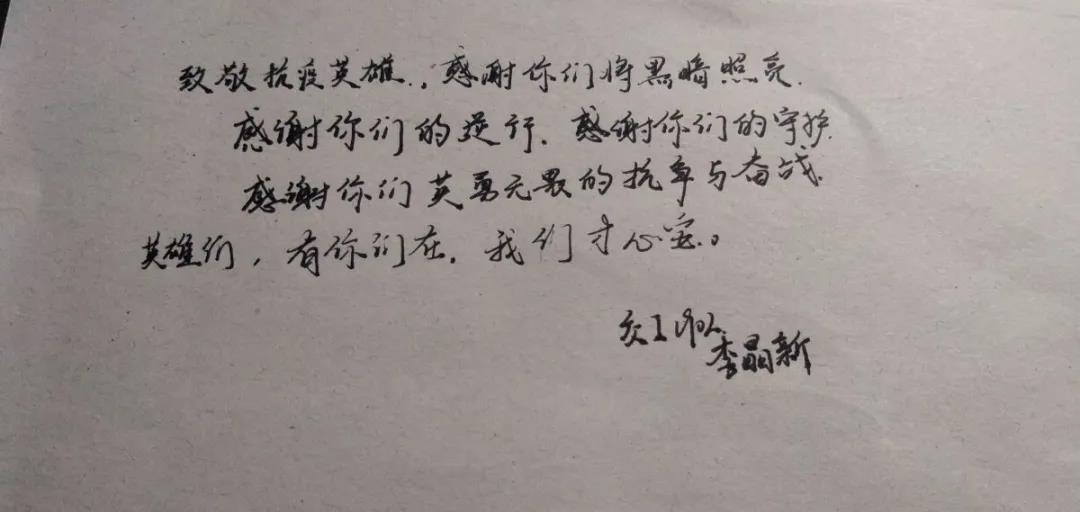 致敬抗疫英雄.,感谢你们将黑暗照亮.
感谢你们的逆行.感谢你们的守护.
感谢你们英勇无畏的抗争与奋战.
英雄们,有你们在.我们才心安.。
交工1902
李晶新